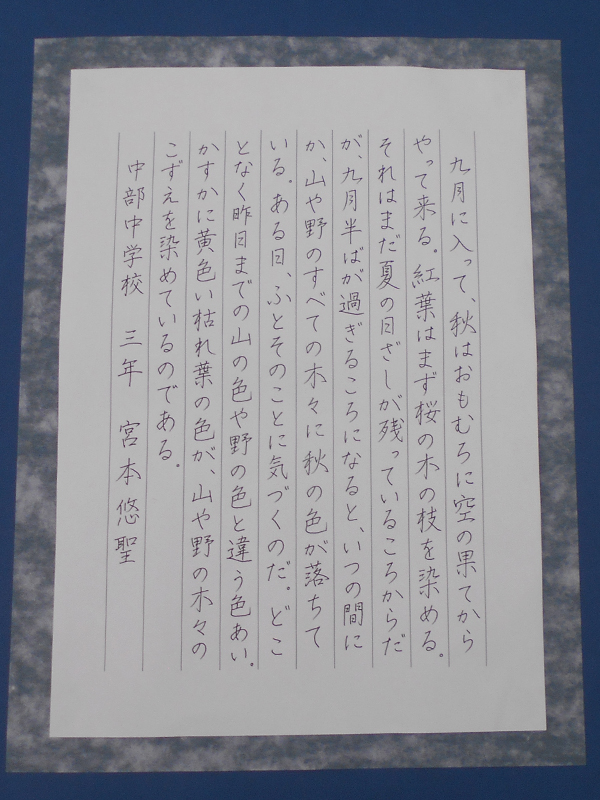 九月に入って、秋はおもむろに空の果てから
やって来る。紅葉はまず桜の木の枝を染める。
それはまだ夏の日ざしが残っているころからだ
が、九月半ばが過ぎるころになると、いつの間に
か、山や野のすべての木々に秋の色が落ちて
いる。ある日、ふとそのことに気づくのだ。どこ
となく昨日までの山の色や野の色と違う色あい。
かすかに黄色い枯れ葉の色が、山や野の木々の
こずえを染めているのである。
中部中学校 三年 宮本悠聖